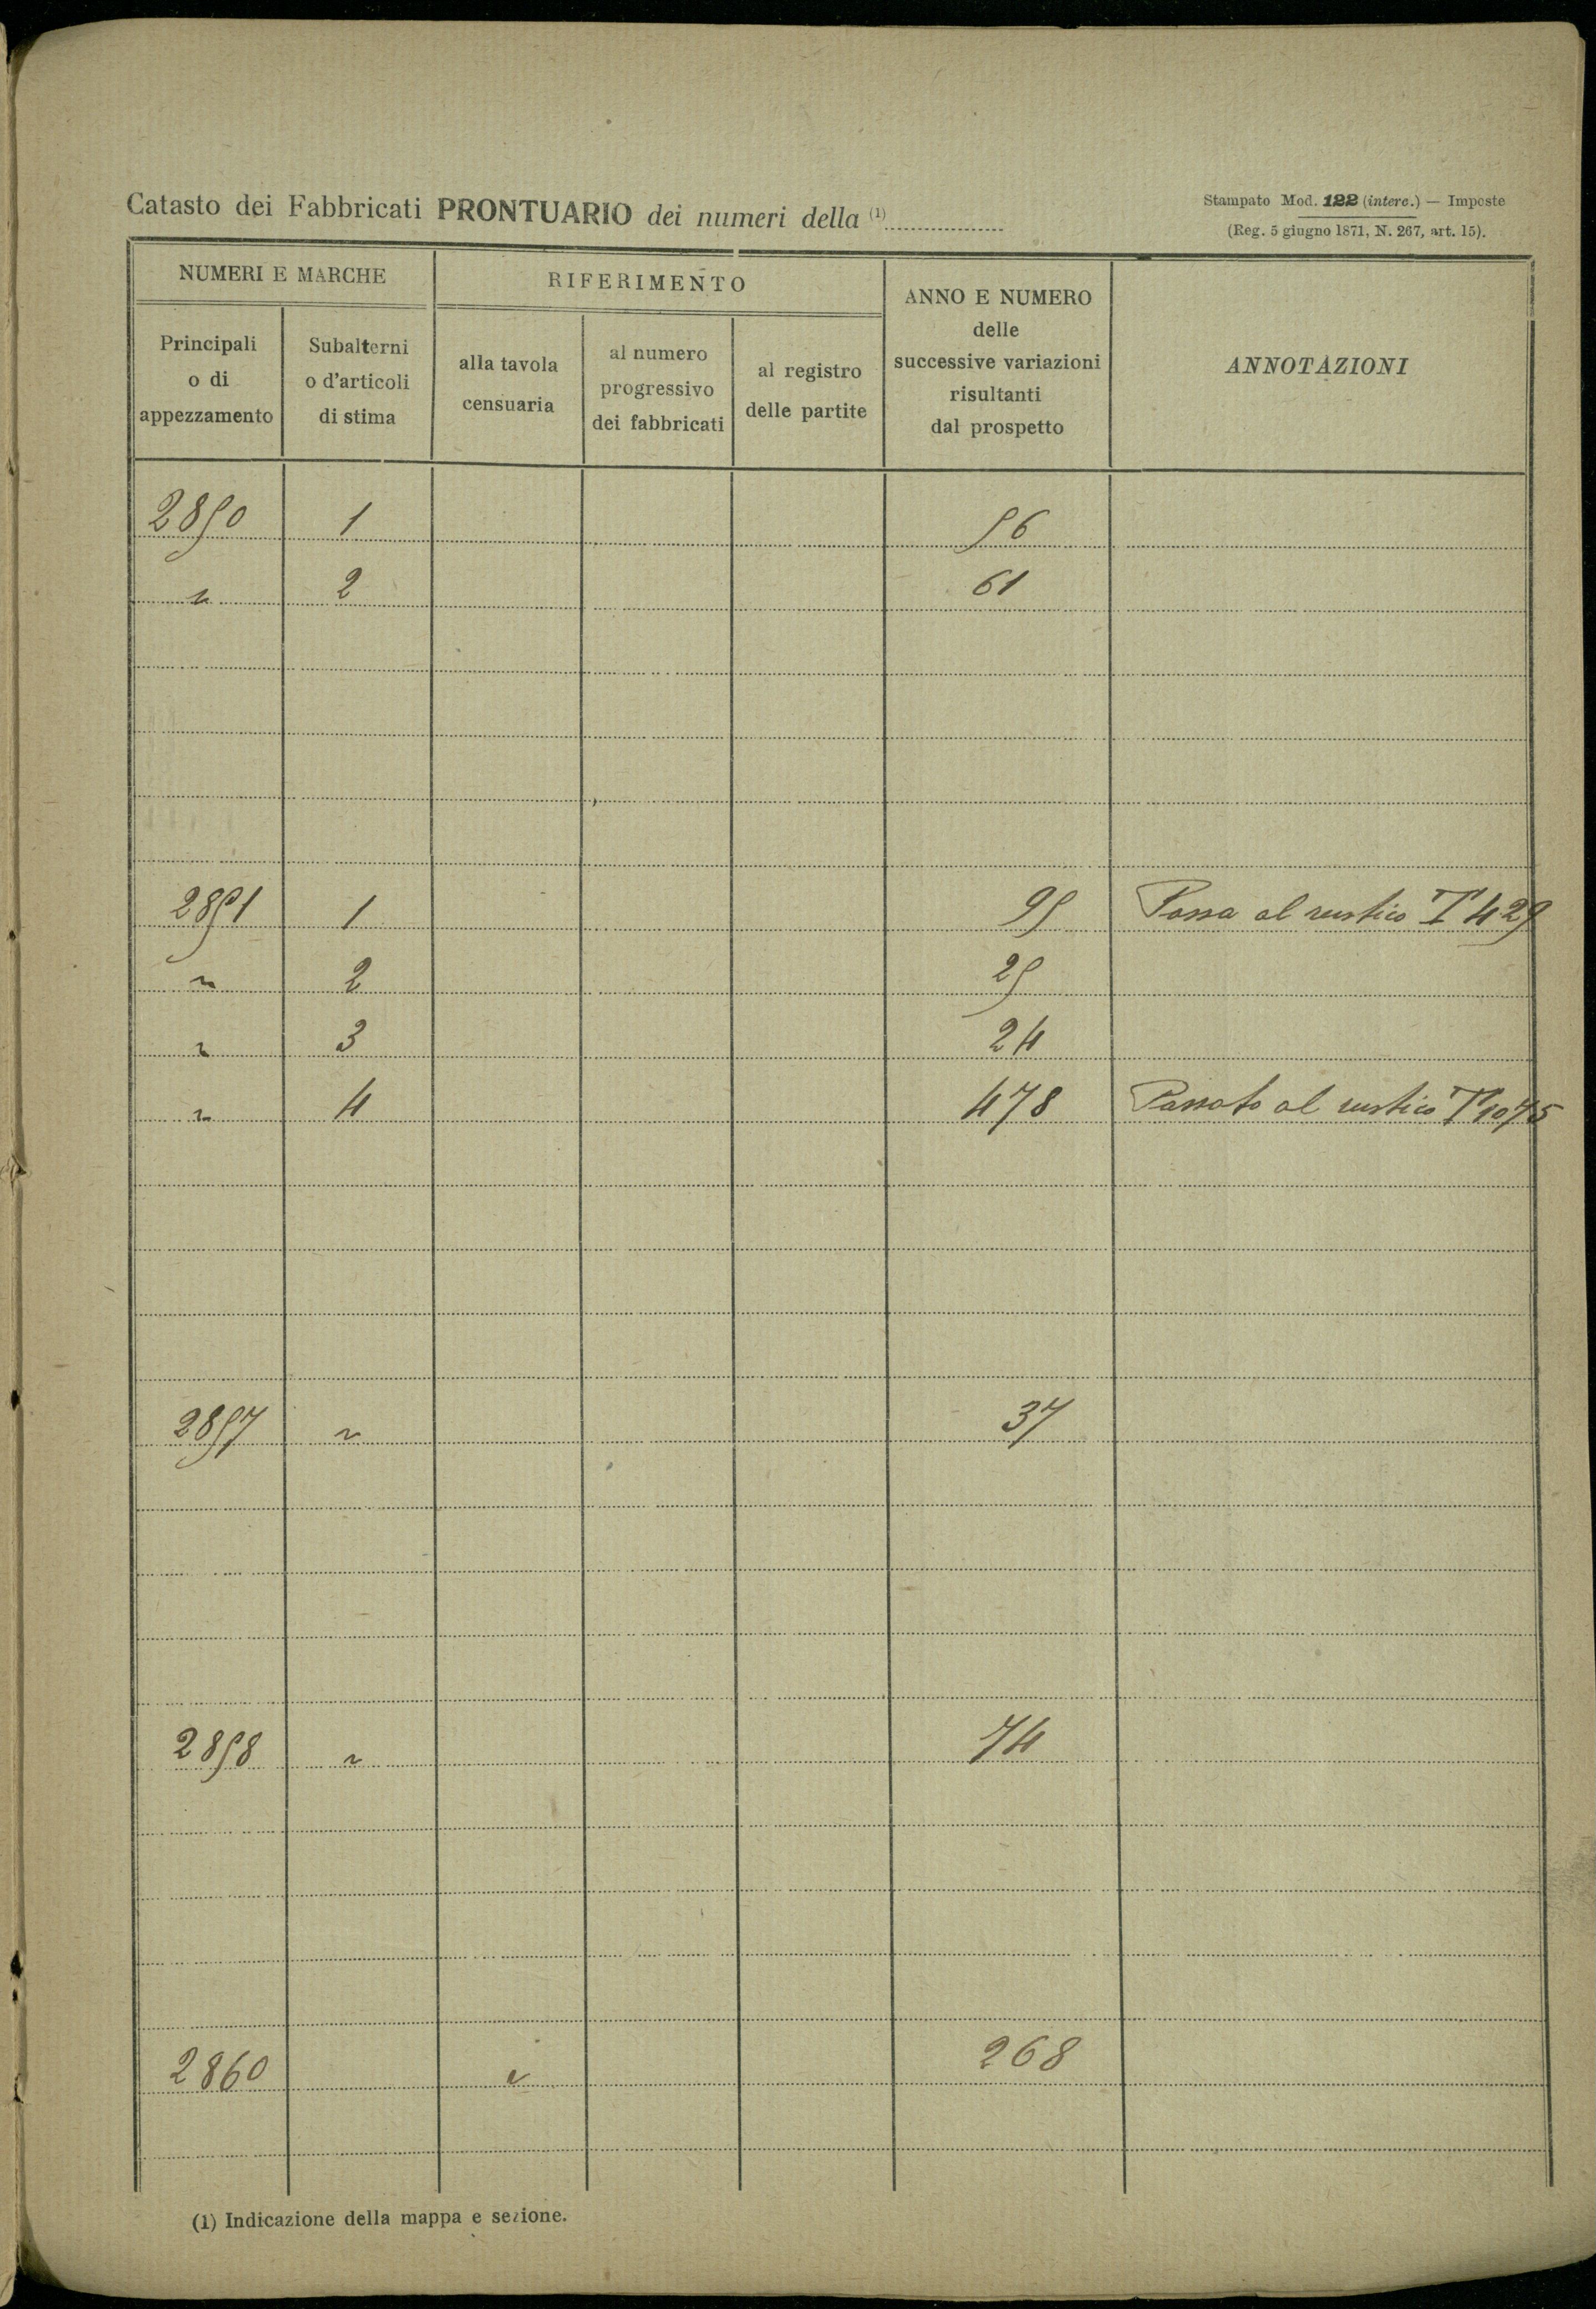 Catasto dei Fabbricati PRONTUARIO dei numeri della (1)
Stampato Mod. 122 (interc.) — Imposte
(Reg. 5 giugno 1871, N. 267, art. 15).
NUMERI E MARCHE
RIFERIMENTO
ANNO E NUMERO
delle
successive variazioni
risultanti
dal prospetto
ANNOTAZIONI
Principali
o di
appezzamento
Subalterni
o d'articoli
di stima
alla tavola
censuaria
al numero
progressivo
dei fabbricati
al registro
delle partite
2850 1 56
" 2 61
2851 1 95 Passa al rustico T 429
" 2 25
" 3 24
" 4 478 Passato al rustico T 1075
2857 " 37
2858 " 74
2860 " 268
(1) Indicazione della mappa e sezione.